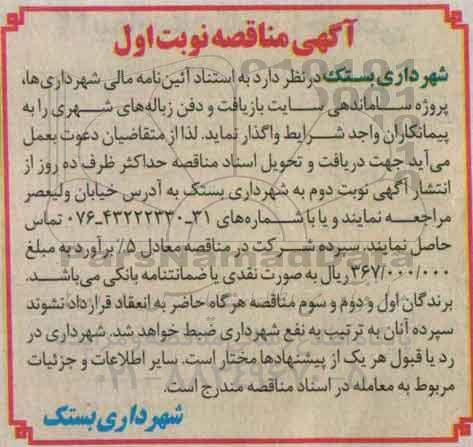 آگهی مناقصه نوبت اول
شهرداری بستک درنظر دارد به استناد آئین‌نامه مالی شهرداری‌ها،
پروژه ساماندهی سایت بازیافت و دفن زباله‌های شهری را به
پیمانکاران واجد شرایط واگذار نماید. لذا از متقاضیان دعوت بعمل
می‌آید جهت دریافت و تحویل اسناد مناقصه حداکثر ظرف ده روز از
انتشار آگهی نوبت دوم به شهرداری بستک به آدرس خیابان ولیعصر
مراجعه نمایند و یا با شماره‌های ۳۱-۴۳۲۲۲۳۳۰-۰۷۶ تماس
حاصل نمایند. سپرده شرکت در مناقصه معادل ۵٪ برآورد به مبلغ
۳۶۷/۰۰۰/۰۰۰ ریال به صورت نقدی یا ضمانتنامه بانکی می‌باشد.
برندگان اول و دوم و سوم مناقصه هرگاه حاضر به انعقاد قرارداد نشوند
سپرده آنان به ترتیب به نفع شهرداری ضبط خواهد شد. شهرداری در
رد یا قبول هر یک از پیشنهادها مختار است. سایر اطلاعات و جزئیات
مربوط به معامله در اسناد مناقصه مندرج است.
شهرداری بستک
ParsNamadData